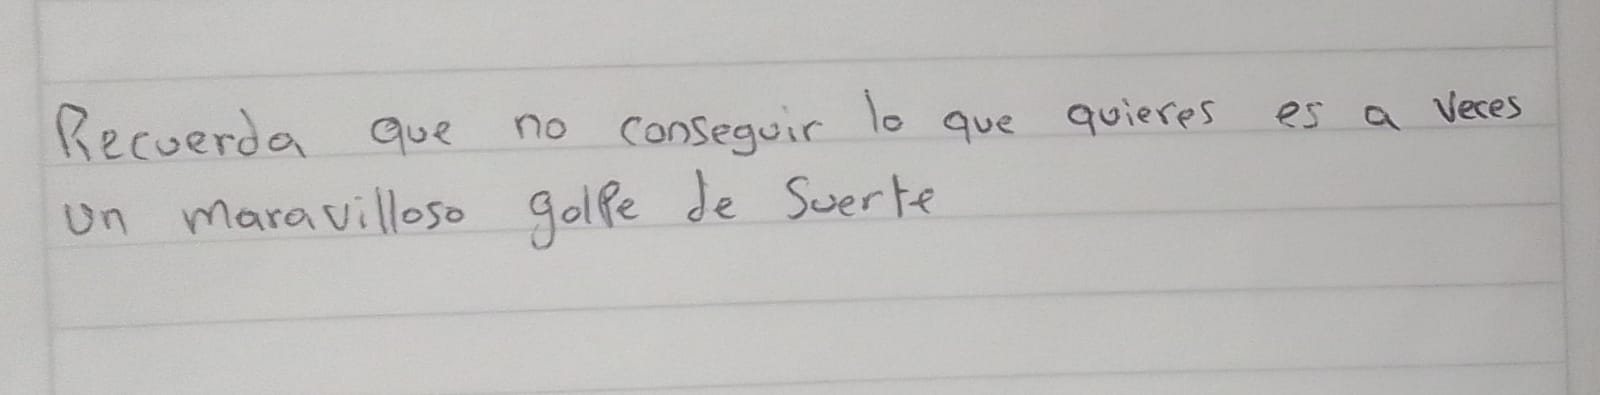 Recuerda que no conseguir lo que quieres es a veces
un maravilloso golpe de suerte